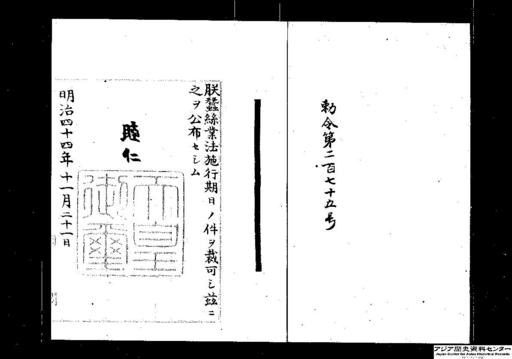 勅令第二百七十五号
朕蠶絲業法施行期日ノ件ヲ裁可シ茲ニ
之ヲ公布セシム
睦仁
天皇御璽
明治四十四年十一月二十一日
アジア歴史資料センター
Japan Center for Asian Historical Records